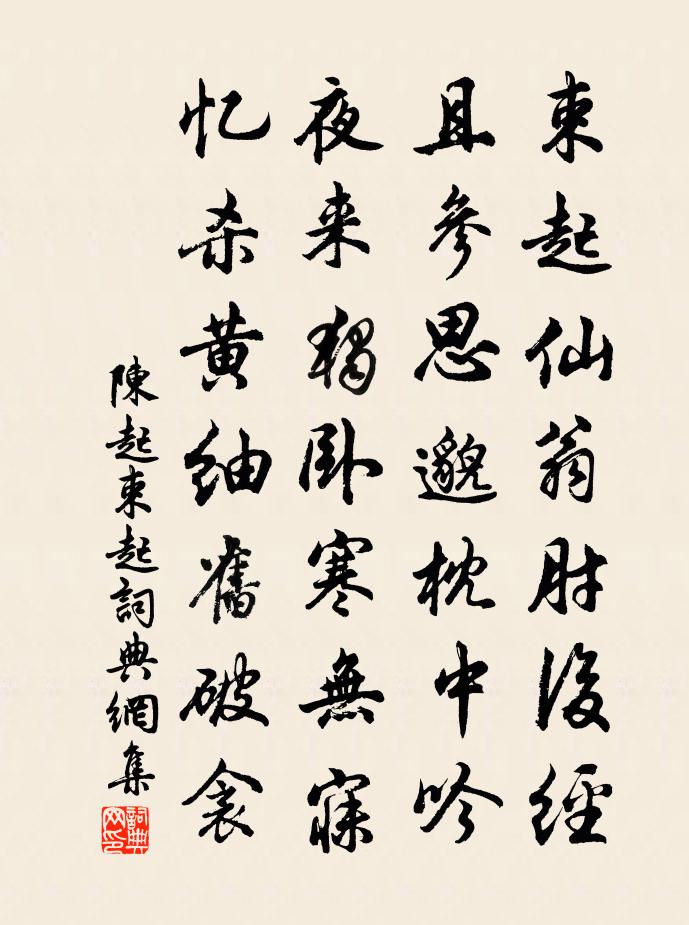 束起仙翁肘後經
且參思邈枕中吟
夜来獨卧寒無寐
忆杀黄紬舊破衾
陳起束起詞典網集
詞典网印